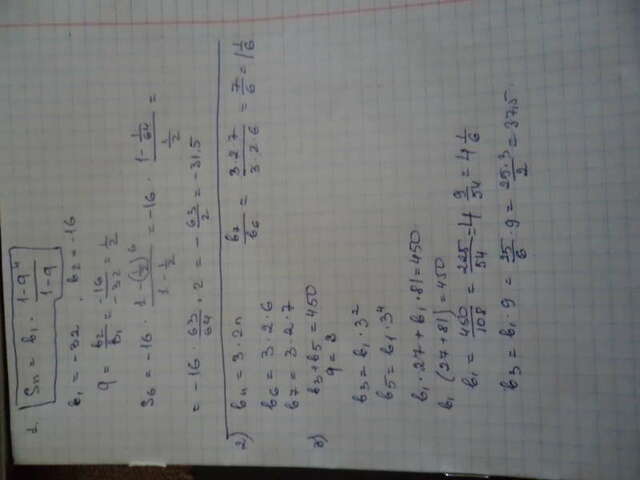 1. Sn = b₁ · (1-qⁿ)/(1-q)
b₁ = -32 b₂ = -16
q = b₂/b₁ = -16/-32 = 1/2
S₆ = -16 · (1-(1/2)⁶)/(1-1/2) = -16 · (1-1/64)/(1/2) =
= -16 · 63/64 · 2 = - 63/2 = -31.5
2) bn = 3·2n
b₆ = 3·2·6
b₇ = 3·2·7
b₇/b₆ = 3·2·7/3·2·6 = 7/6 = 1 1/6
3) b₃+b₅ = 450
q = 3
b₃ = b₁·3²
b₅ = b₁·3⁴
b₁·27 + b₁·81 = 450
b₁ (27+81) = 450
b₁ = 450/108 = 225/54 = 4 9/54 = 4 1/6
b₃ = b₁·9 = 25/6 · 9 = 25·3/2 = 37,5.